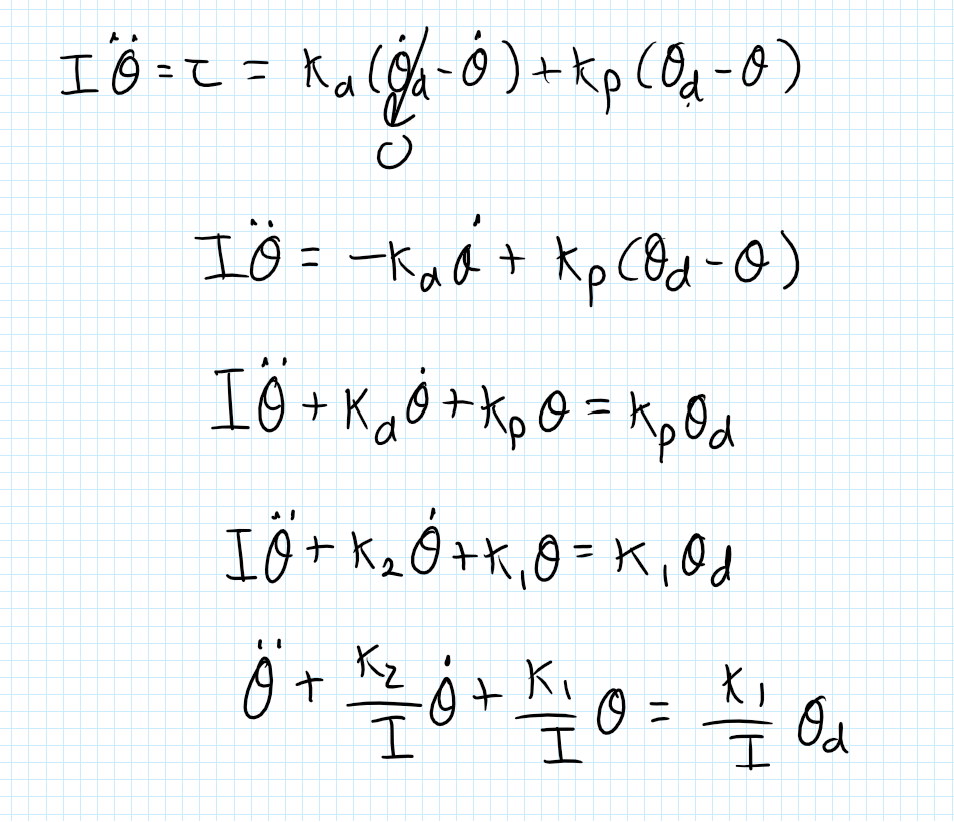 Iθ̈ = τ = K_d(θ̇_d - θ̇) + K_p(θ_d - θ)
0
Iθ̈ = -K_d θ̇ + K_p(θ_d - θ)
Iθ̈ + K_d θ̇ + K_p θ = K_p θ_d
Iθ̈ + K₂θ̇ + K₁θ = K₁θ_d
θ̈ + K₂/I θ̇ + K₁/I θ = K₁/I θ_d